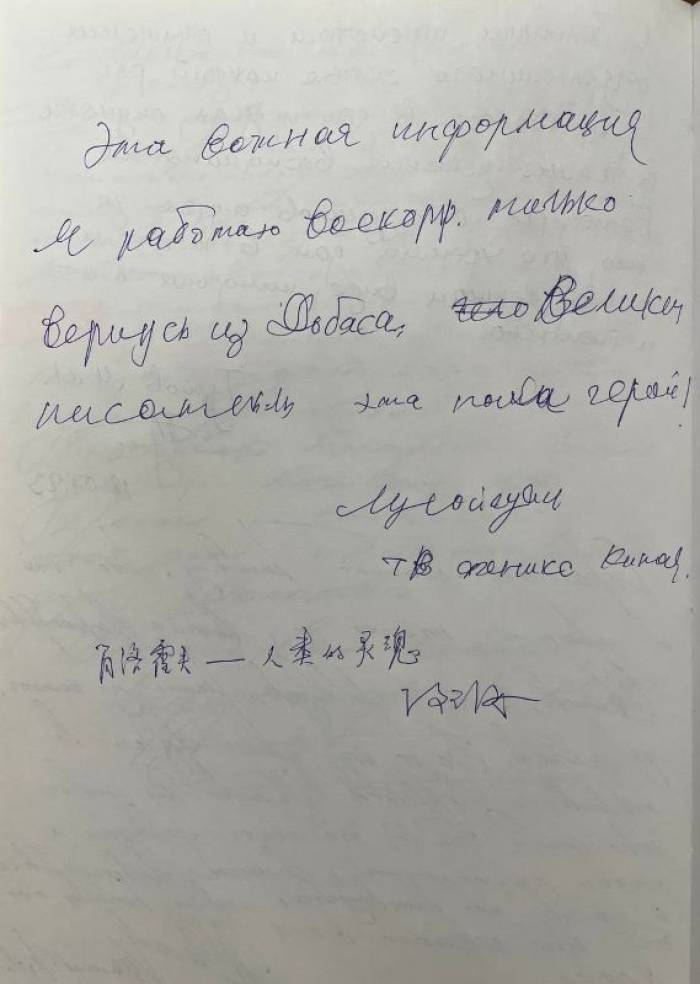 Эта важная информация
Я работаю Воскорр. только
вернусь из Добаса, Велики
писатель эта герой!
Лусойгуан
ТВ феникс Китая.
肖洛霍夫——人类的灵魂